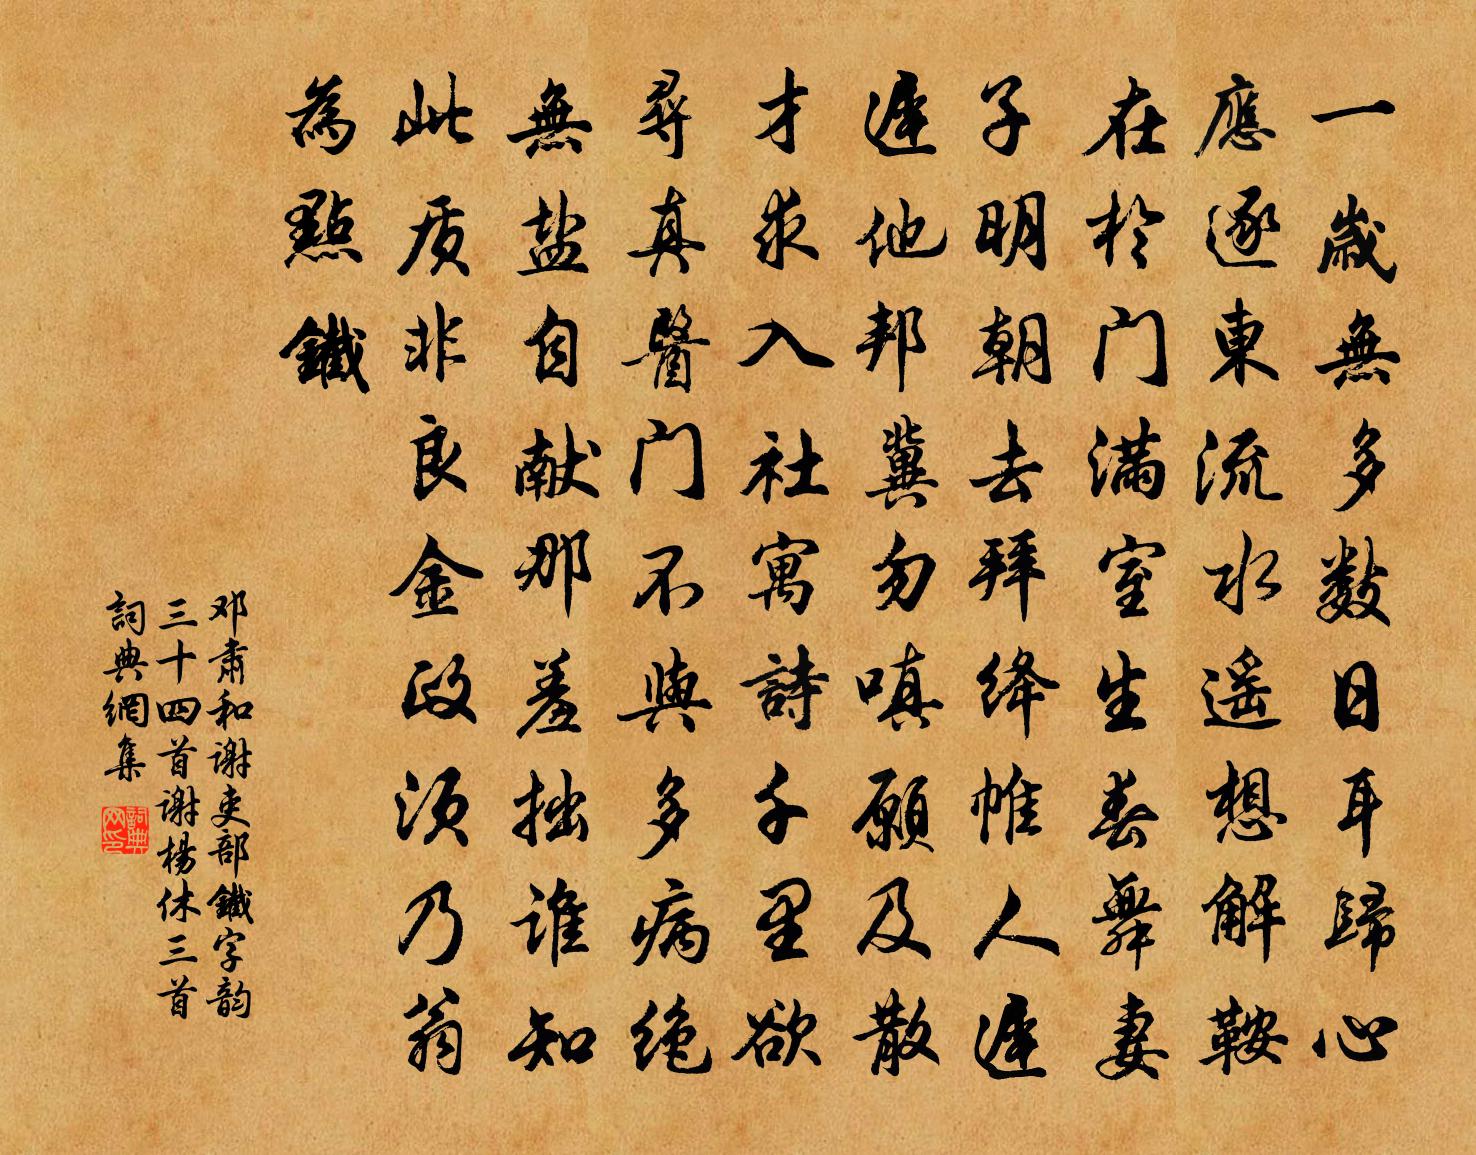 一歲無多数日耳歸心
應逐東流水遥想解鞍
在於门满室生春舞妻
子明朝去拜绛帷人遲
遲他邦冀勿嗔願及散
才求入社寓詩千里欲
尋真醫门不與多病绝
無盐自献那羞拙誰知
此质非良金政须乃翁
為點鐵
邓肃和谢吏部鐵字韵
三十四首谢楊休三首
詞典網集
詞典網印